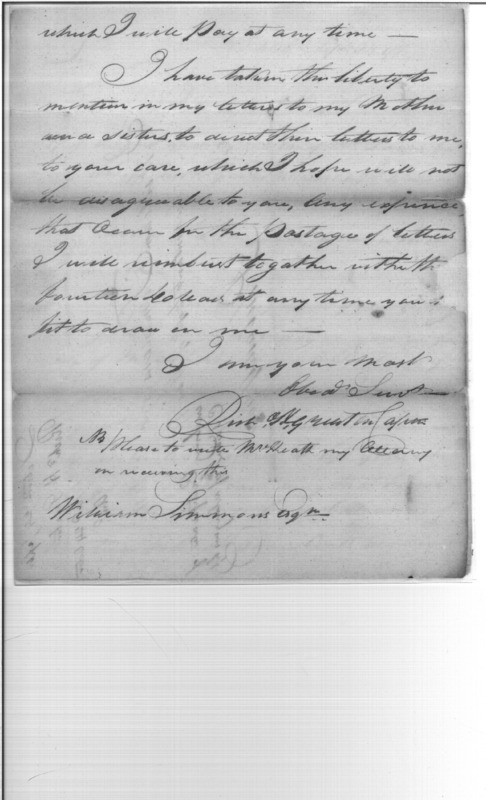 which I will Pay at any time —
I have taken the liberty to
mention in my letters to my Mother
and Sisters, to direct their letters to me,
to your care, which I hope will not
be disagreeable to you, Any expence
that Occur for the postage of letters
I will reimburst togather withe th
fourteen Dolears at any time you
fit to draw on me —
I am your most
Obedt Servt
Rich H Greaton Capt
NB Please to write Mr Heath my Attorny
on receiving this
William Simmons esqr